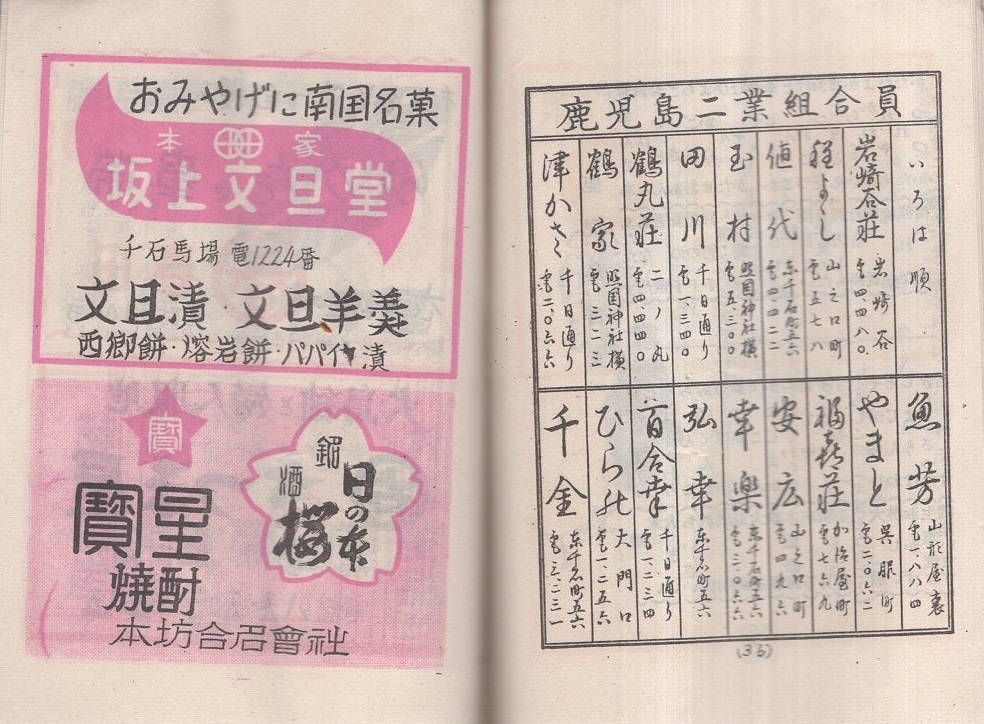 おみやげに南国名菓
本家
坂上文旦堂
千石馬場 電1224番
文旦漬 文旦羊羹
西郷餅・溶岩餅・パパイヤ漬
寶
寶星
焼酎
銘酒
日の本櫻
本坊合名會社
鹿児島二業組合員
いろは順
岩崎谷荘 岩崎谷 電四、四八〇
山之口町 電五七八
値代 東千石町五六 電四、四二二
玉村 照国神社横 電五、三〇〇
田川 千日通り 電一、三四〇
鶴丸荘 二ノ丸 電四、四四〇
鶴家 照国神社横 電三、三二三
津かさ 千日通り 電二、〇六六
魚芳 山形屋裏 電一、八八四
やまと 呉服町 電二、〇六二
福喜荘 加治屋町 電七六九
安広 山之口町 電四九六
幸楽 東千石町五六 電二、〇六六
弘幸 東千石町五六
百合幸 千日通り 電一、二三四
ひら乃 大門口 電一、二五六
千金 東千石町五六 電三、二三一
(35)